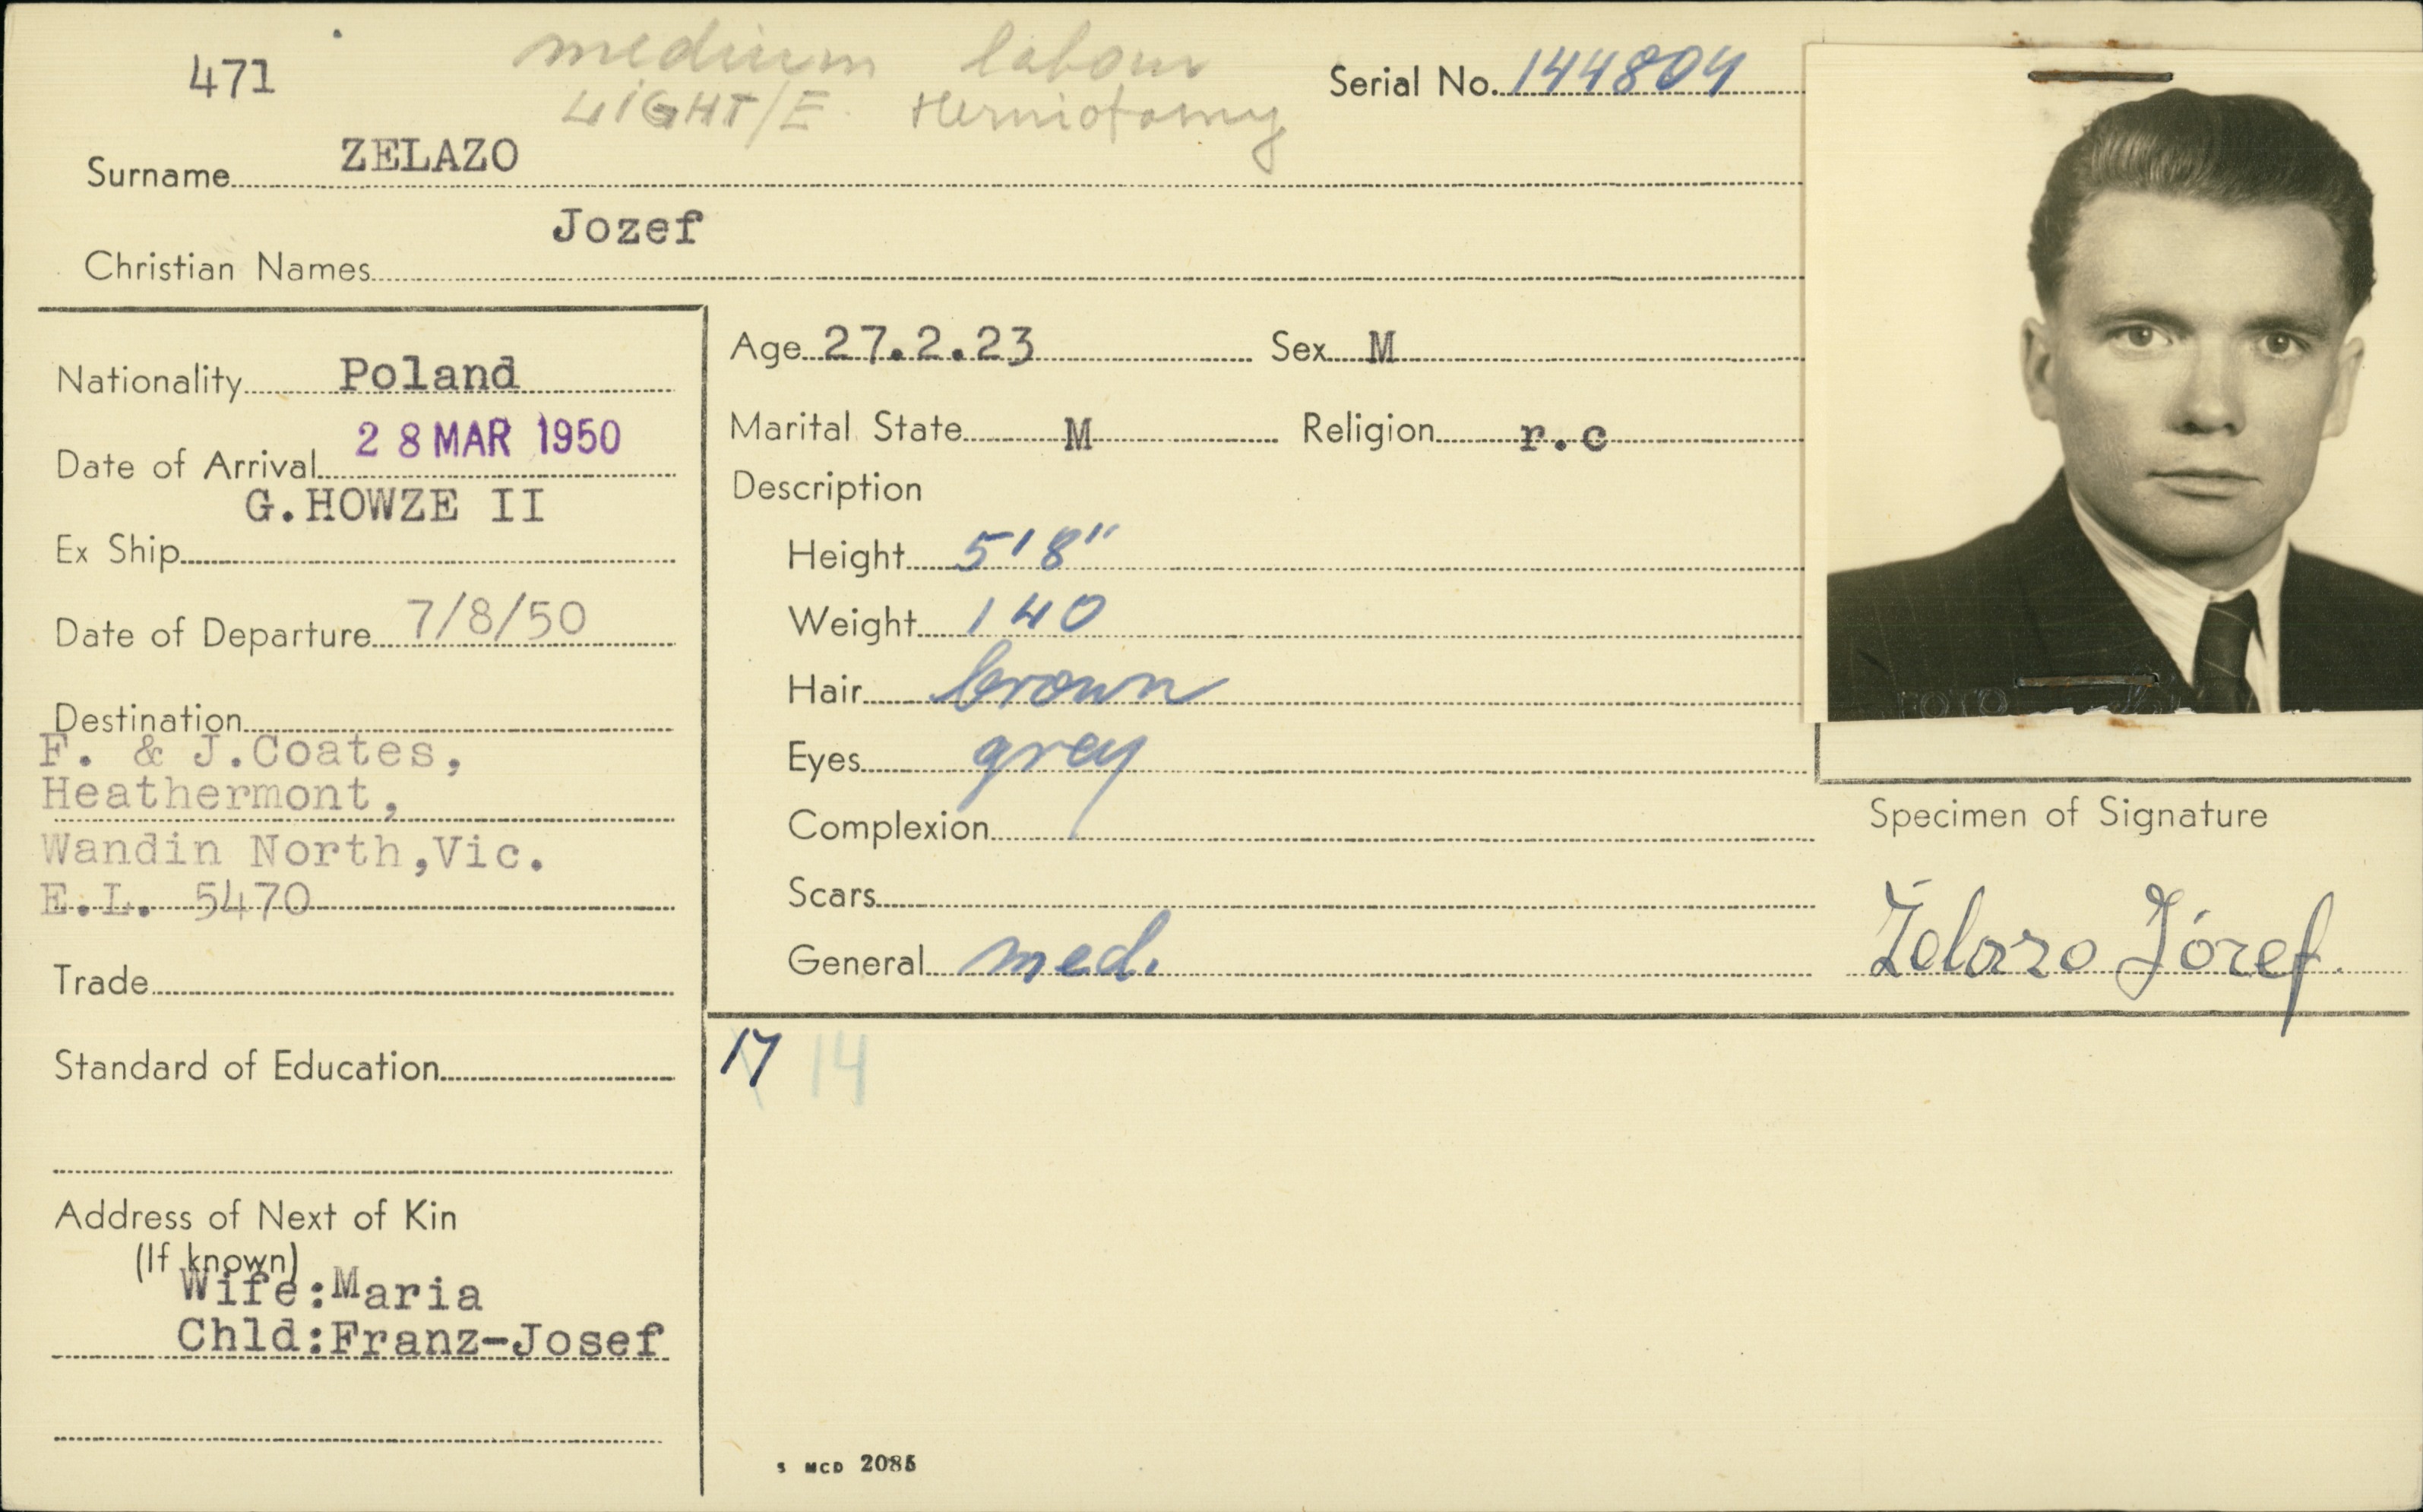 471
medium labour
LIGHT/E. Herniotomy
Serial No. 144804
Surname ZELAZO
Christian Names Jozef
Nationality Poland
Date of Arrival 28 MAR 1950
Ex Ship G.HOWZE II
Date of Departure 7/8/50
Destination
F. & J.Coates,
Heathermont,
Wandin North,Vic.
E.L. 5470
Trade
Standard of Education
Address of Next of Kin
(If known)
Wife:Maria
Chld:Franz-Josef
Age 27.2.23 Sex M
Marital State M Religion r.c
Description
Height 5'8"
Weight 140
Hair brown
Eyes grey
Complexion
Scars
General med.
FOTO
Specimen of Signature
Żelazo Józef
17 14
S MCD 2085